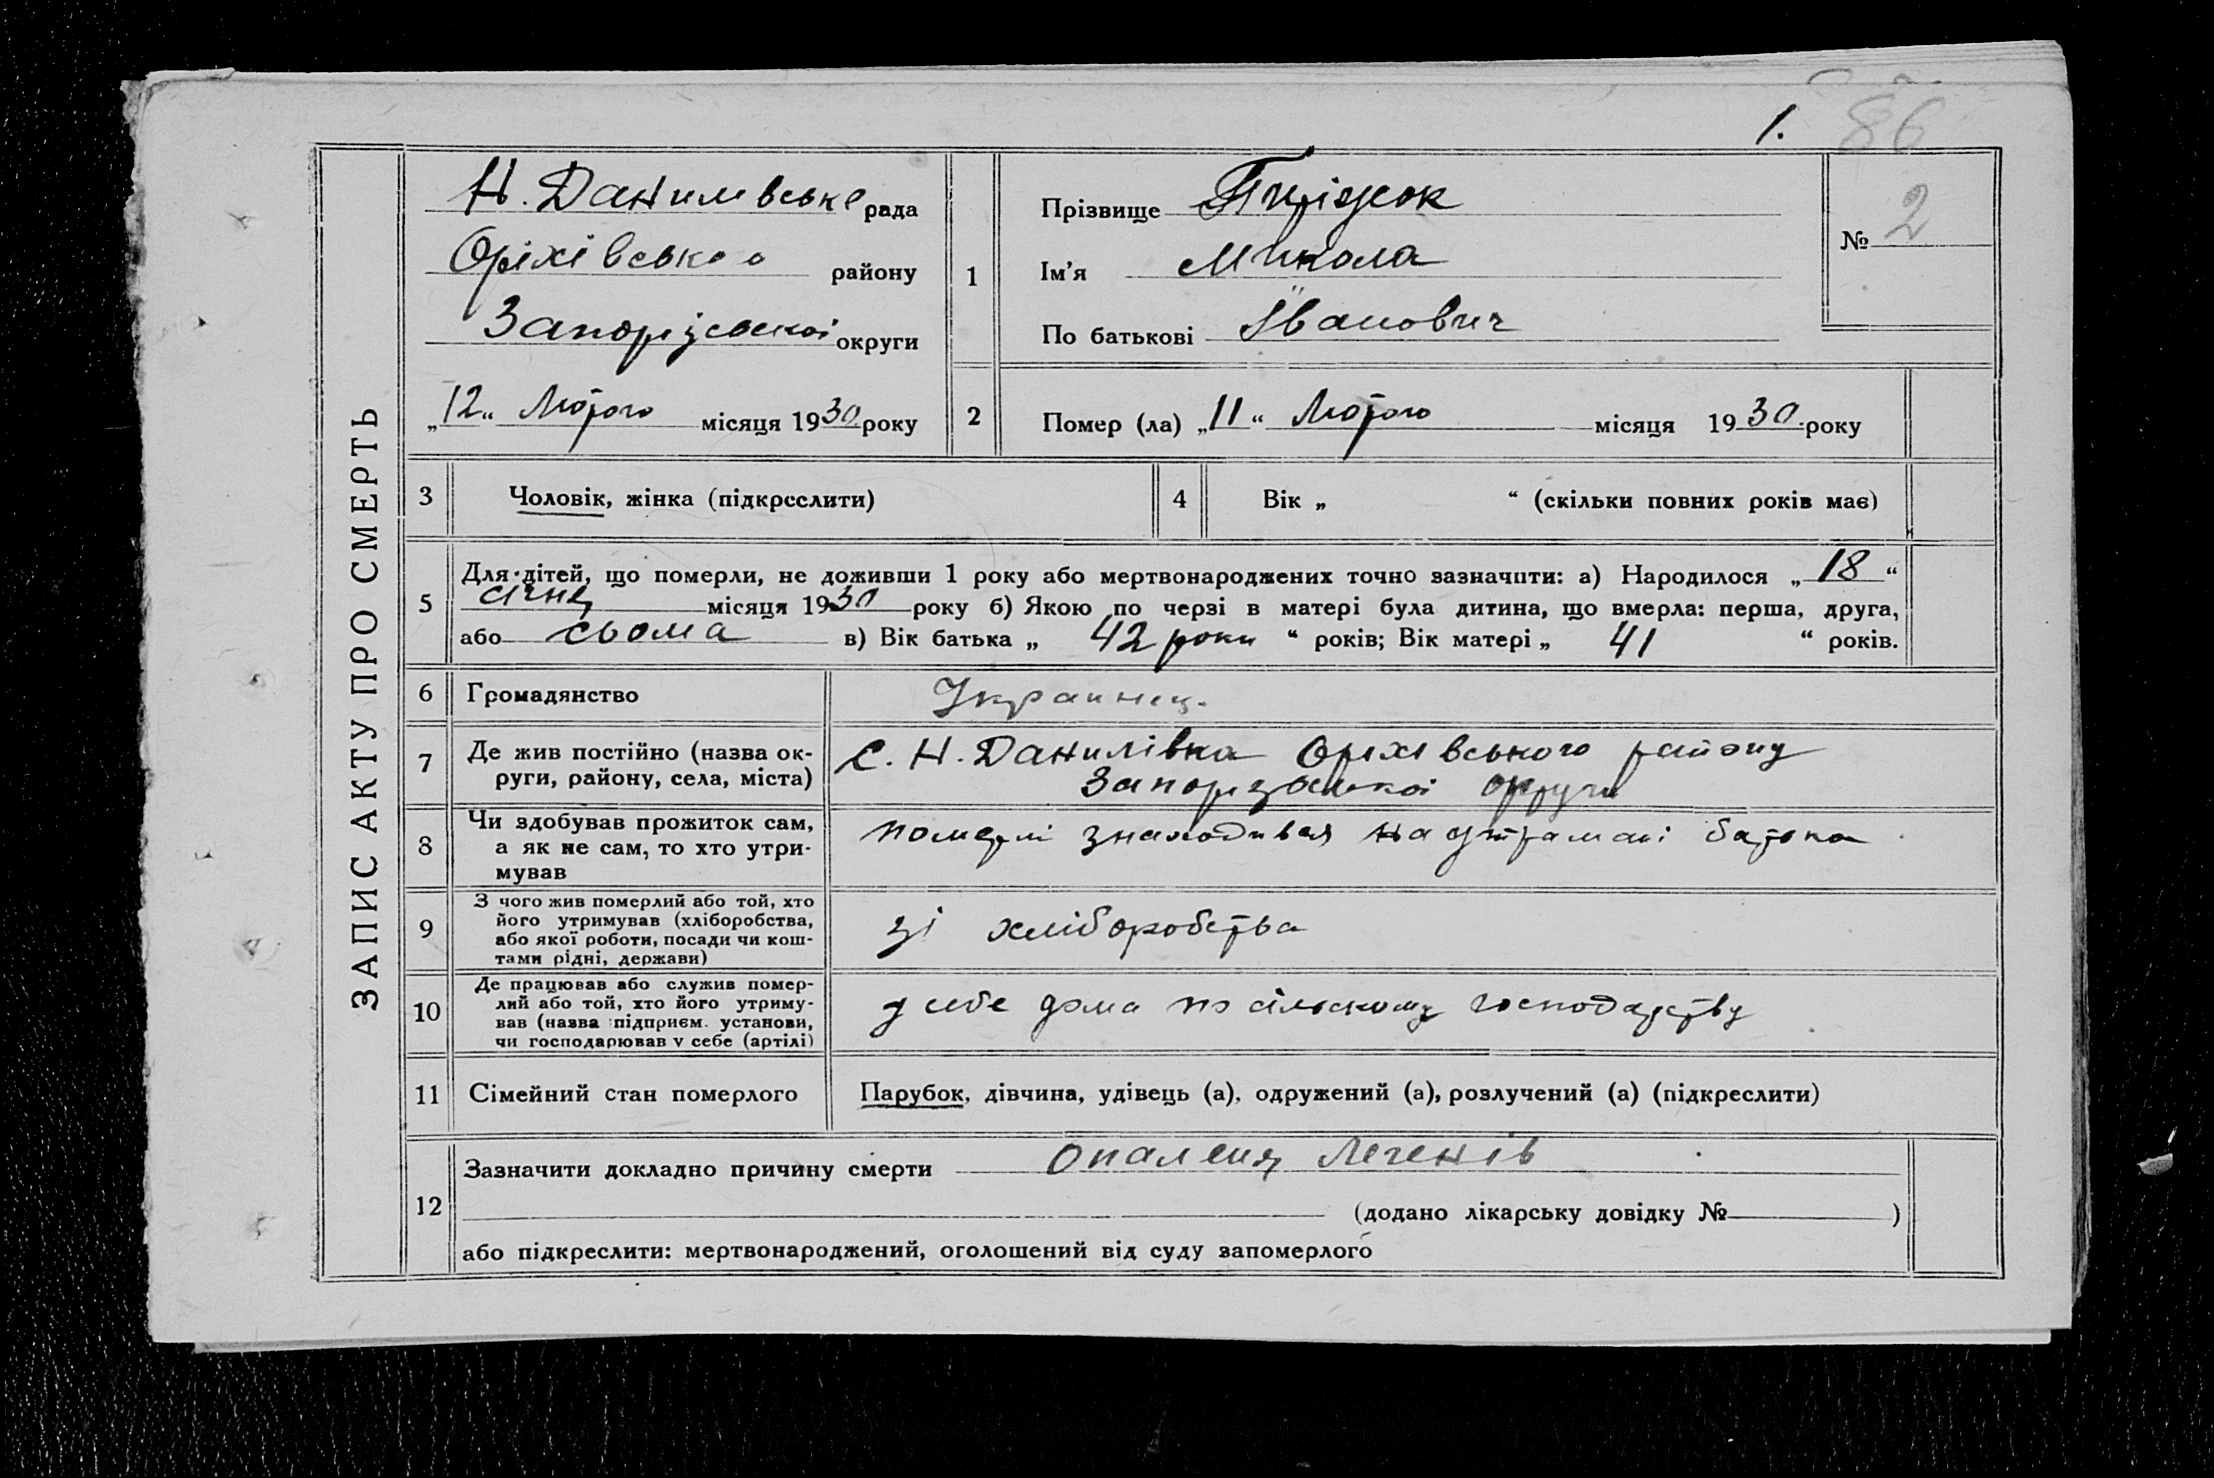 1. 86
ЗАПИС АКТУ ПРО СМЕРТЬ
Н. Данилевська рада
Оріхівського району
Запорізської округи
„12“ Лютого місяця 1930 року
1
Прізвище Пиріжок
Ім’я Микола
По батькові Іванович
№ 2
2
Помер (ла) „11“ Лютого місяця 1930 року
3 Чоловік, жінка (підкреслити)
4 Вік „ “ (скільки повних років має)
5
Для дітей, що померли, не доживши 1 року або мертвонароджених точно зазначити: а) Народилося „18“
січня місяця 1930 року б) Якою по черзі в матері була дитина, що вмерла: перша, друга,
або сьома в) Вік батька „ 42 роки “ років; Вік матері „ 41 “ років.
6 Громадянство Украинец.
7
Де жив постійно (назва ок-
руги, району, села, міста)
С. Н. Данилівка Оріхівського району
Запорізької округи
8
Чи здобував прожиток сам,
а як не сам, то хто утри-
мував
знаходився на утримані батька
9
З чого жив померлий або той, хто
його утримував (хліборобства,
або якої роботи, посади чи кош-
тами рідні, держави)
зі хліборобства
10
Де працював або служив помер-
лий або той, хто його утриму-
вав (назва підприєм. установи,
чи господарював у себе (артілі)
у себе дома по сільскому господарству
11 Сімейний стан померлого Парубок, дівчина, удівець (а), одружений (а), розлучений (а) (підкреслити)
12
Зазначити докладно причину смерти опаления легенів
(додано лікарську довідку № )
або підкреслити: мертвонароджений, оголошений від суду запомерлого